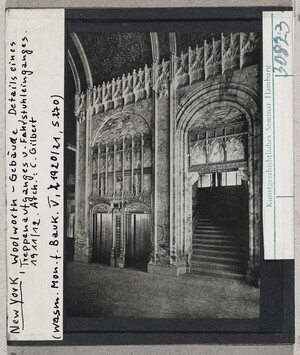 New York, Woolworth - Gebäude Details eines
Treppenaufganges u. Fahrstuhleinganges.
1911/12. Arch.: C. Gilbert
(Wasm. Mon. f. Bauk. V, 1920/21, S. 270)
30823
Kunstgeschichtliches Seminar Hamburg